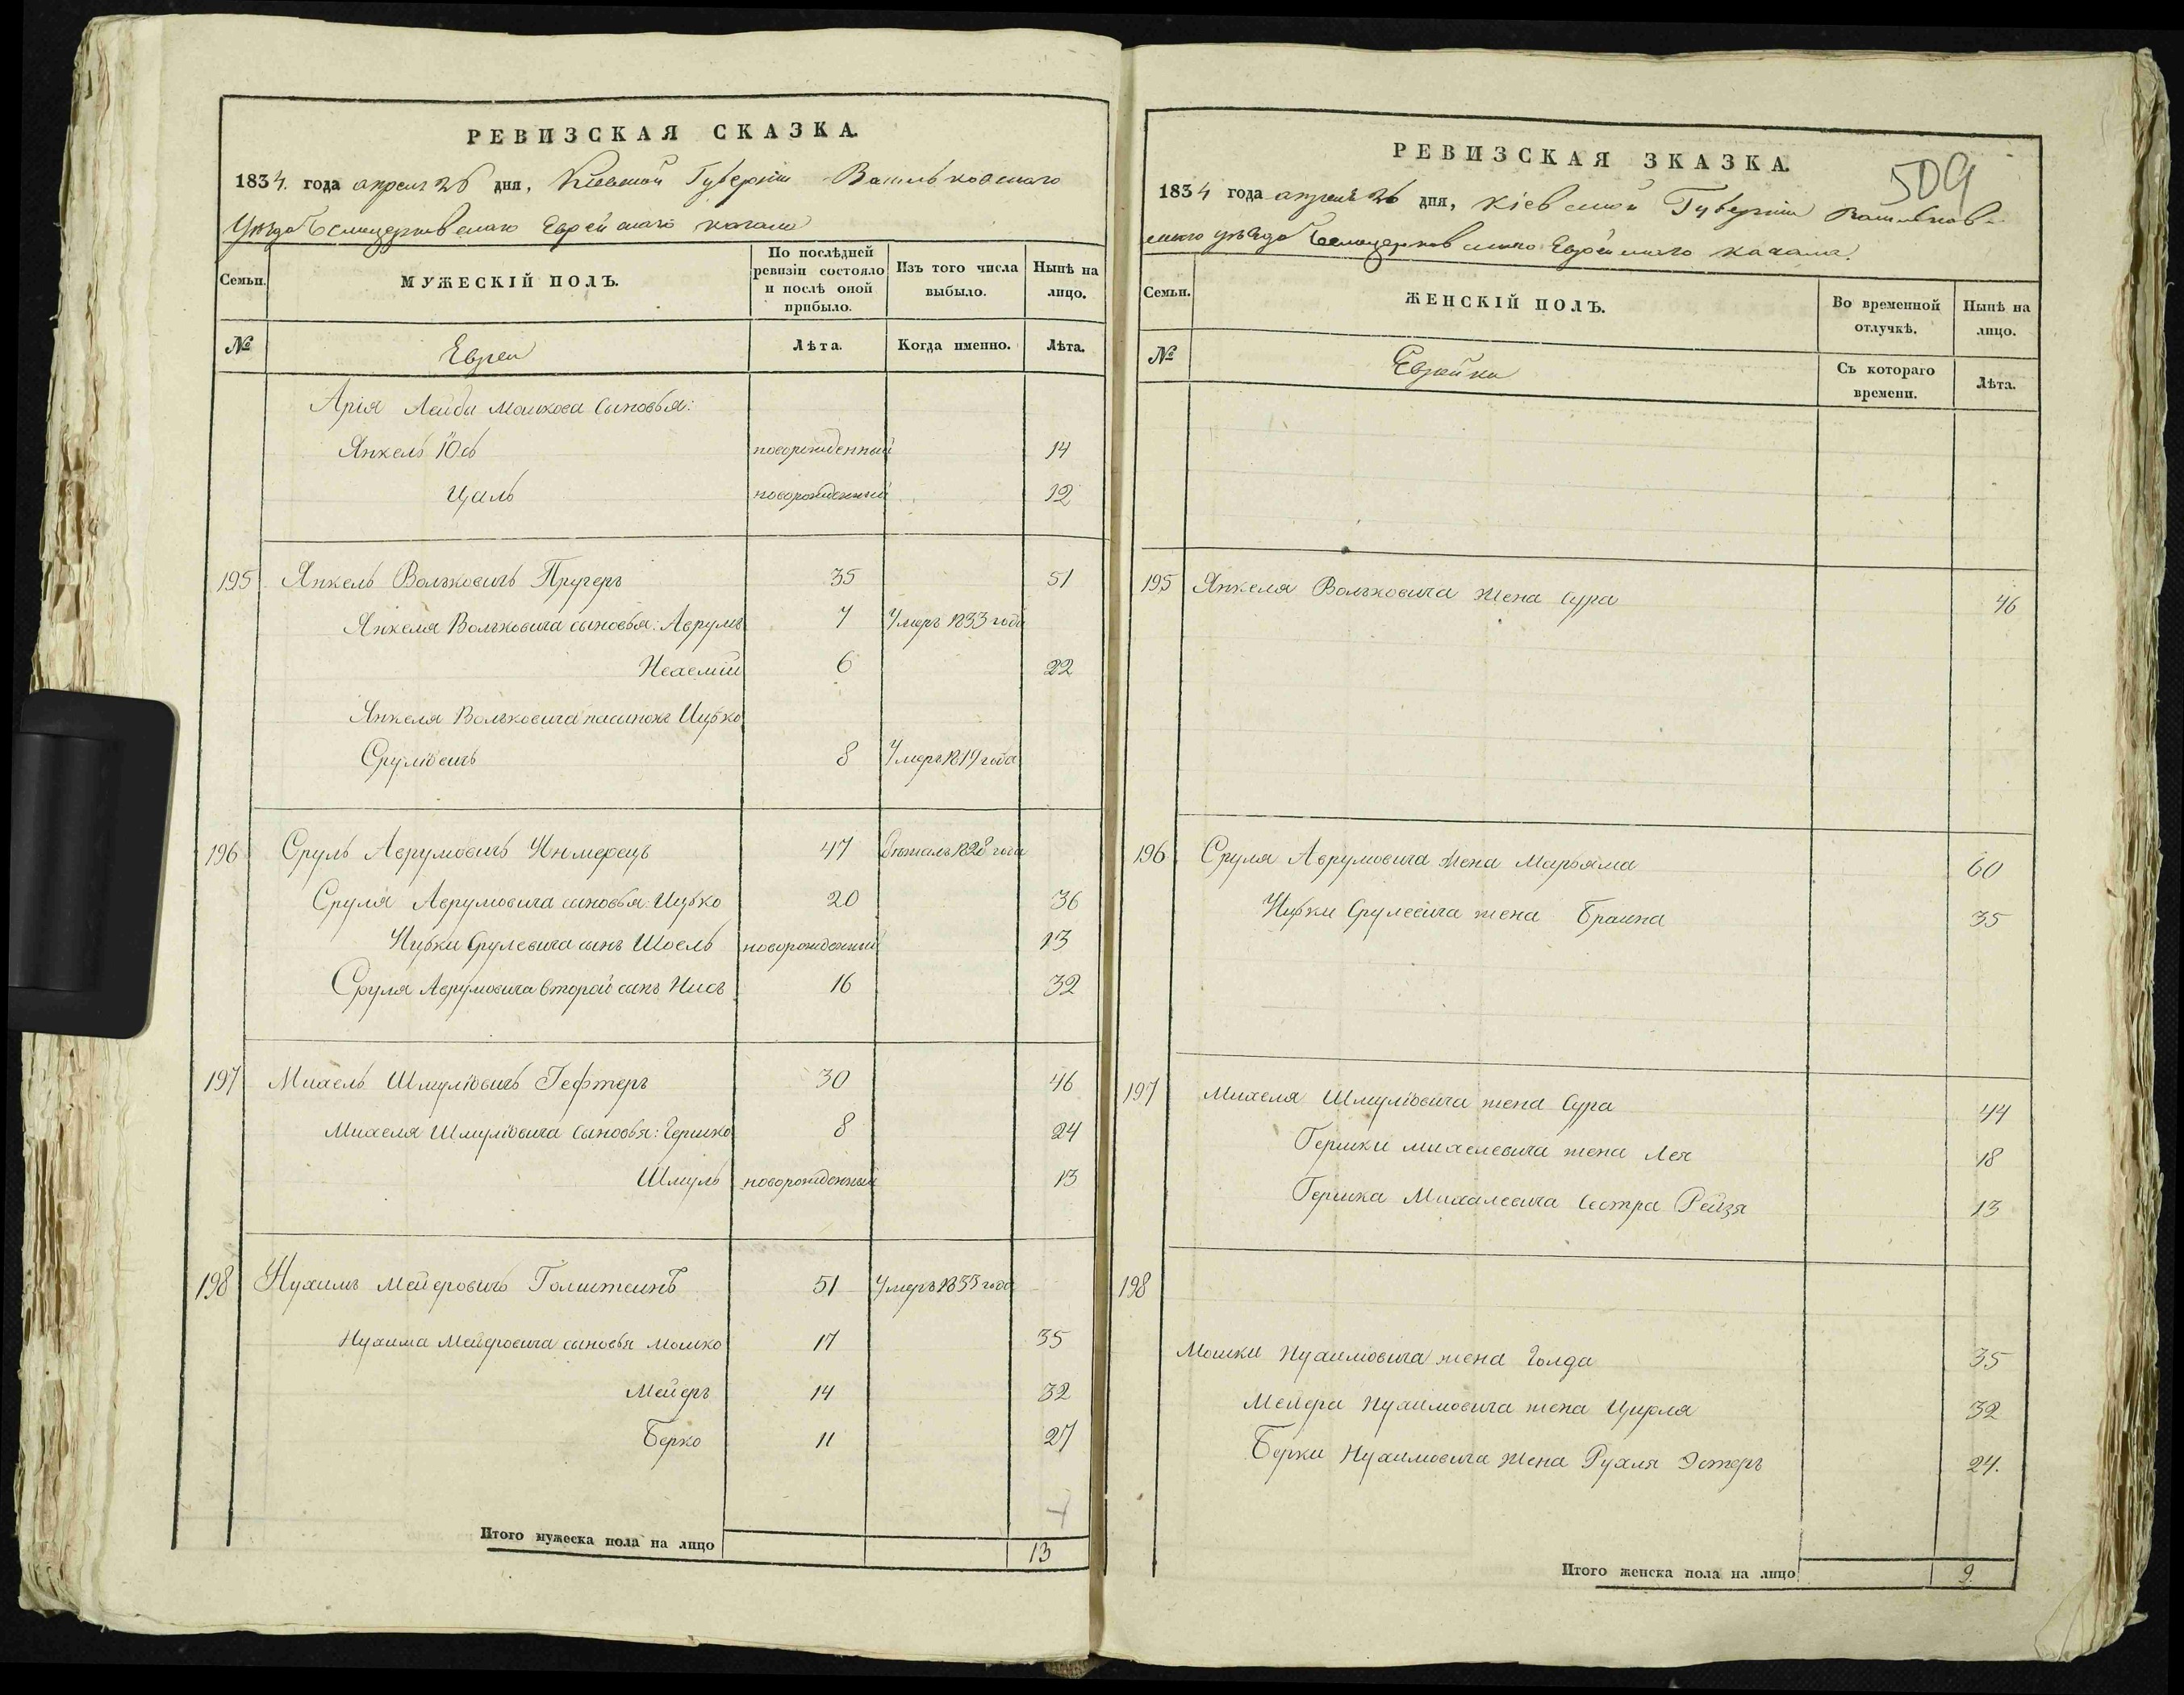 РЕВИЗСКАЯ СКАЗКА.
1834. года апреля 26 дня, Кіевской Губерніи Васильковскаго
Уезда Белоцерковскаго Еврейскаго кагала
Семьи. МУЖЕСКІЙ ПОЛЪ. По послѣдней ревизіи состояло и послѣ оной прибыло. Изъ того числа выбыло. Нынѣ на лицо.
№ Евреи Лѣта. Когда именно. Лѣта.
Арія Лейбы Мошкова сыновья:
Янкель Юсь новорожденный 14
Цаль новорожденный 12
195 Янкель Вольковичь Пругеръ 35 51
Янкеля Вольковича сыновья: Аврумъ 7 Умеръ 1833 года
Нехемии 6 22
Янкеля Вольковича пасынокъ Ицько
Срулiовичь 8 Умеръ 1819 года
196 Сруль Аврумовичь 47 Бежалъ 1828 года
Сруля Аврумовича сыновья: Ицько 20 36
Ицьки Срулевича сынъ Шоель новорожденный 13
Сруля Аврумовича второй сынъ Нисъ 16 32
197 Михель Шмуліовичь Гефтеръ 30 46
Михеля Шмуліовича сыновья: Гершко 8 24
Шмуль новорожденный 13
198 Нухимъ Мейеровичь Голштеинъ 51 Умеръ 1833 года
Нухима Мейеровича сыновья Мошко 17 35
Мейеръ 14 32
Берко 11 27
Итого мужеска пола на лицо 13
509
РЕВИЗСКАЯ ЗКАЗКА.
1834 года апреля 26 дня, Кіевской Губерніи Васильков-
скаго уѣзда Белоцерковскаго Еврейскаго кагала.
Семьи. ЖЕНСКІЙ ПОЛЪ. Во временной отлучкѣ. Нынѣ на лицо.
№ Еврейки Съ котораго времени. Лѣта.
195 Янкеля Вольковича жена Сура 46
196 Сруля Аврумовича жена Марьяма 60
Ицьки Срулевича жена Браина 35
197 Михеля Шмуліовича жена Сура 44
Гершки Михелевича жена Лея 18
Гершка Михалевича сестра Рейзя 13
198
Мошки Нухимовича жена Голда 35
Мейера Нухимовича жена Цирля 32
Берки Нухимовича жена Рухля Эстеръ 24.
Итого женска пола на лицо 9.